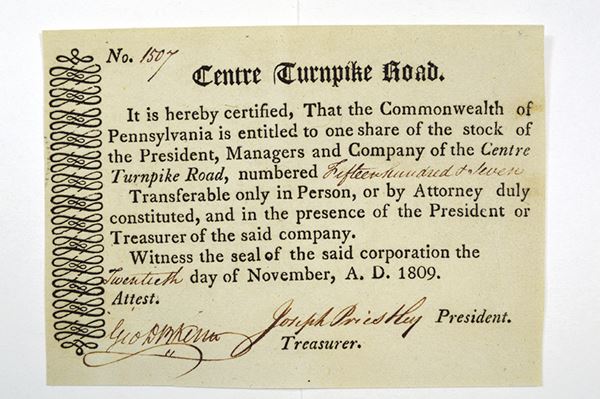 No. 1507
Centre Turnpike Road.
It is hereby certified, That the Commonwealth of
Pennsylvania is entitled to one share of the stock of
the President, Managers and Company of the Centre
Turnpike Road, numbered Fifteen hundred & Seven
Transferable only in Person, or by Attorney duly
constituted, and in the presence of the President or
Treasurer of the said company.
Witness the seal of the said corporation the
Twentieth day of November, A. D. 1809.
Attest.
Joseph Priestley President.
Treasurer.